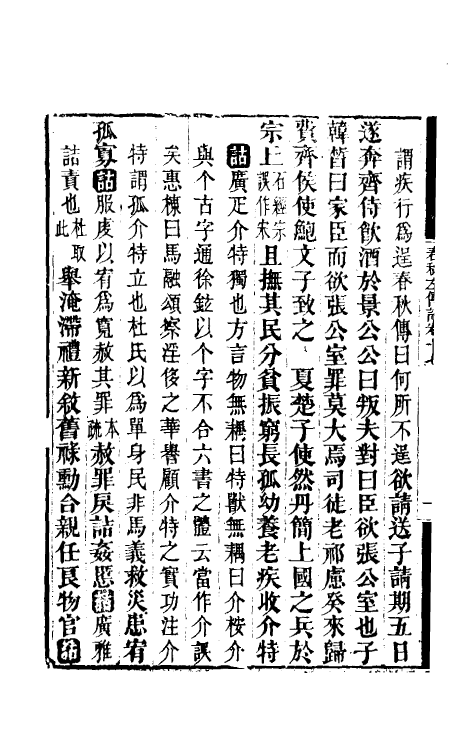 謂疾行爲逞春秋傳曰何所不逞欲請送子請期五日
遂奔齊侍飲酒於景公公曰叛夫對曰臣欲張公室也子
韓晳曰家臣而欲張公室罪莫大焉司徒老祁慮癸來歸
費齊侯使鮑文子致之 夏楚子使然丹簡上國之兵於
宗丘石經宗誤作宋且撫其民分貧振窮長孤幼養老疾收介特
詁廣疋介特獨也方言物無耦曰特獸無耦曰介桉介
與个古字通徐鉉以个字不合六書之體云當作介誤
矣惠棟曰馬融頌察淫侈之華譽顧介特之實功注介
特謂孤介特立也杜氏以爲單身民非馬義救災患宥
孤寡詁服虔以宥爲寬赦其罪本疏赦罪戾詰姦慝詁廣雅
詰責也杜取此舉淹滯禮新敘舊祿勳合親任良物官詁
春秋左傳詁卷十